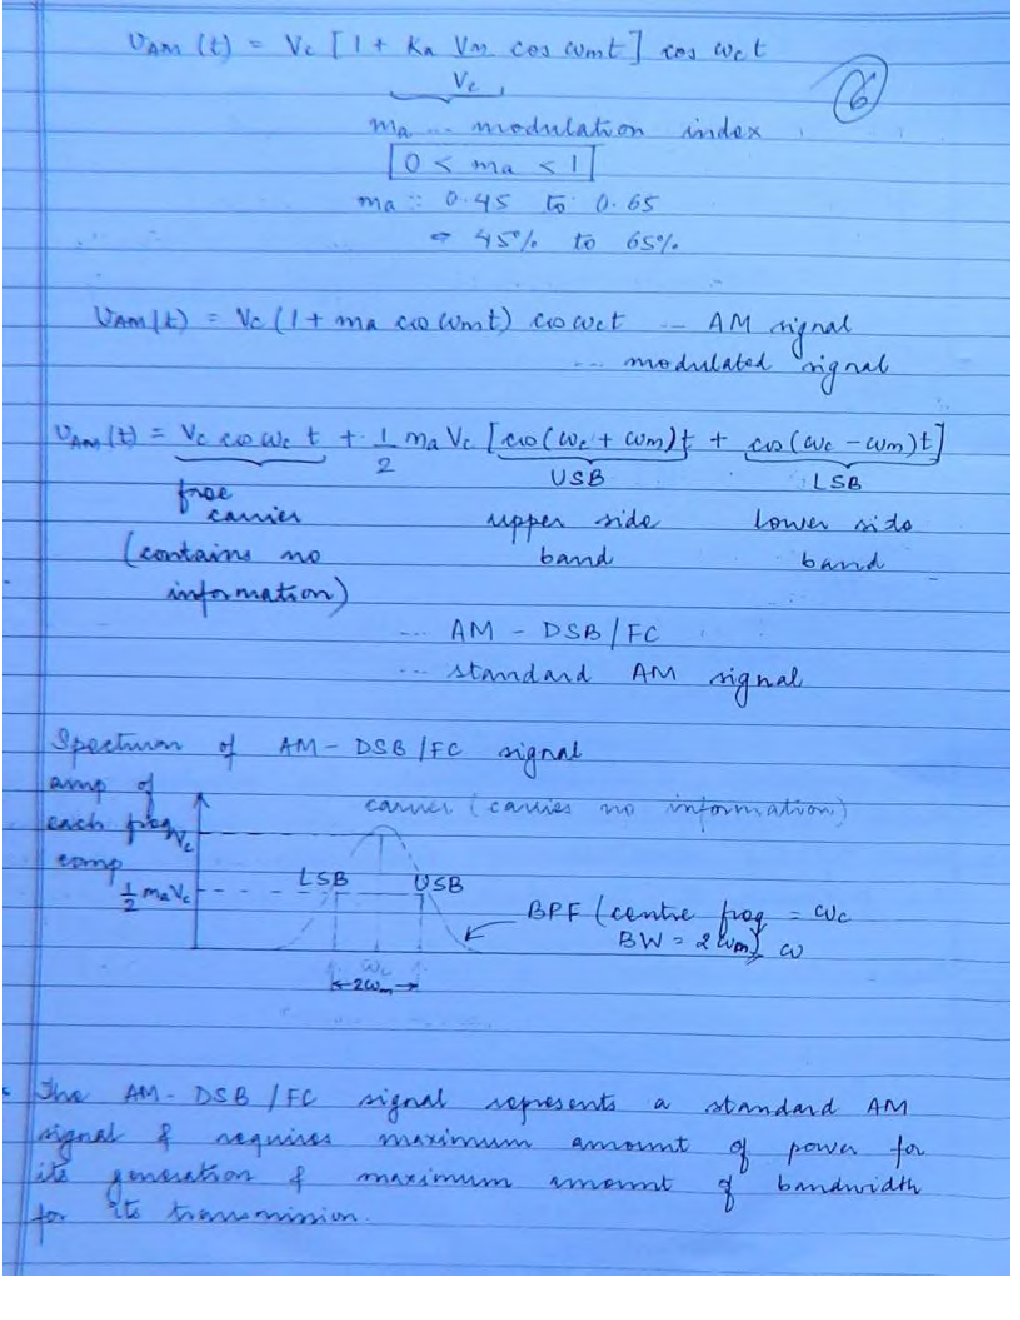 v_AM (t) = Vc [ 1 + Ka Vm/Vc cos ωmt ] cos ωct
6
ma ... modulation index
0 < ma < 1
ma :: 0.45 to 0.65
= 45% to 65%
v_AM(t) = Vc ( 1 + ma cos ωmt ) cos ωct ... AM signal
... modulated signal
v_AM (t) = Vc cos ωc t + 1/2 ma Vc [ cos (ωc + ωm)t + cos (ωc - ωm)t ]
USB LSB
free carrier upper side lower side
(contains no band band
information)
... AM - DSB / FC
... standard AM signal
Spectrum of AM - DSB / FC signal
amp of
each freq
comp
carrier ( carries no information )
Vc
LSB USB
1/2 ma Vc
BPF ( centre freq = ωc
BW = 2ωm) ω
ωc
2ωm
The AM - DSB / FC signal represents a standard AM
signal & requires maximum amount of power for
its generation & maximum amount of bandwidth
for its transmission.